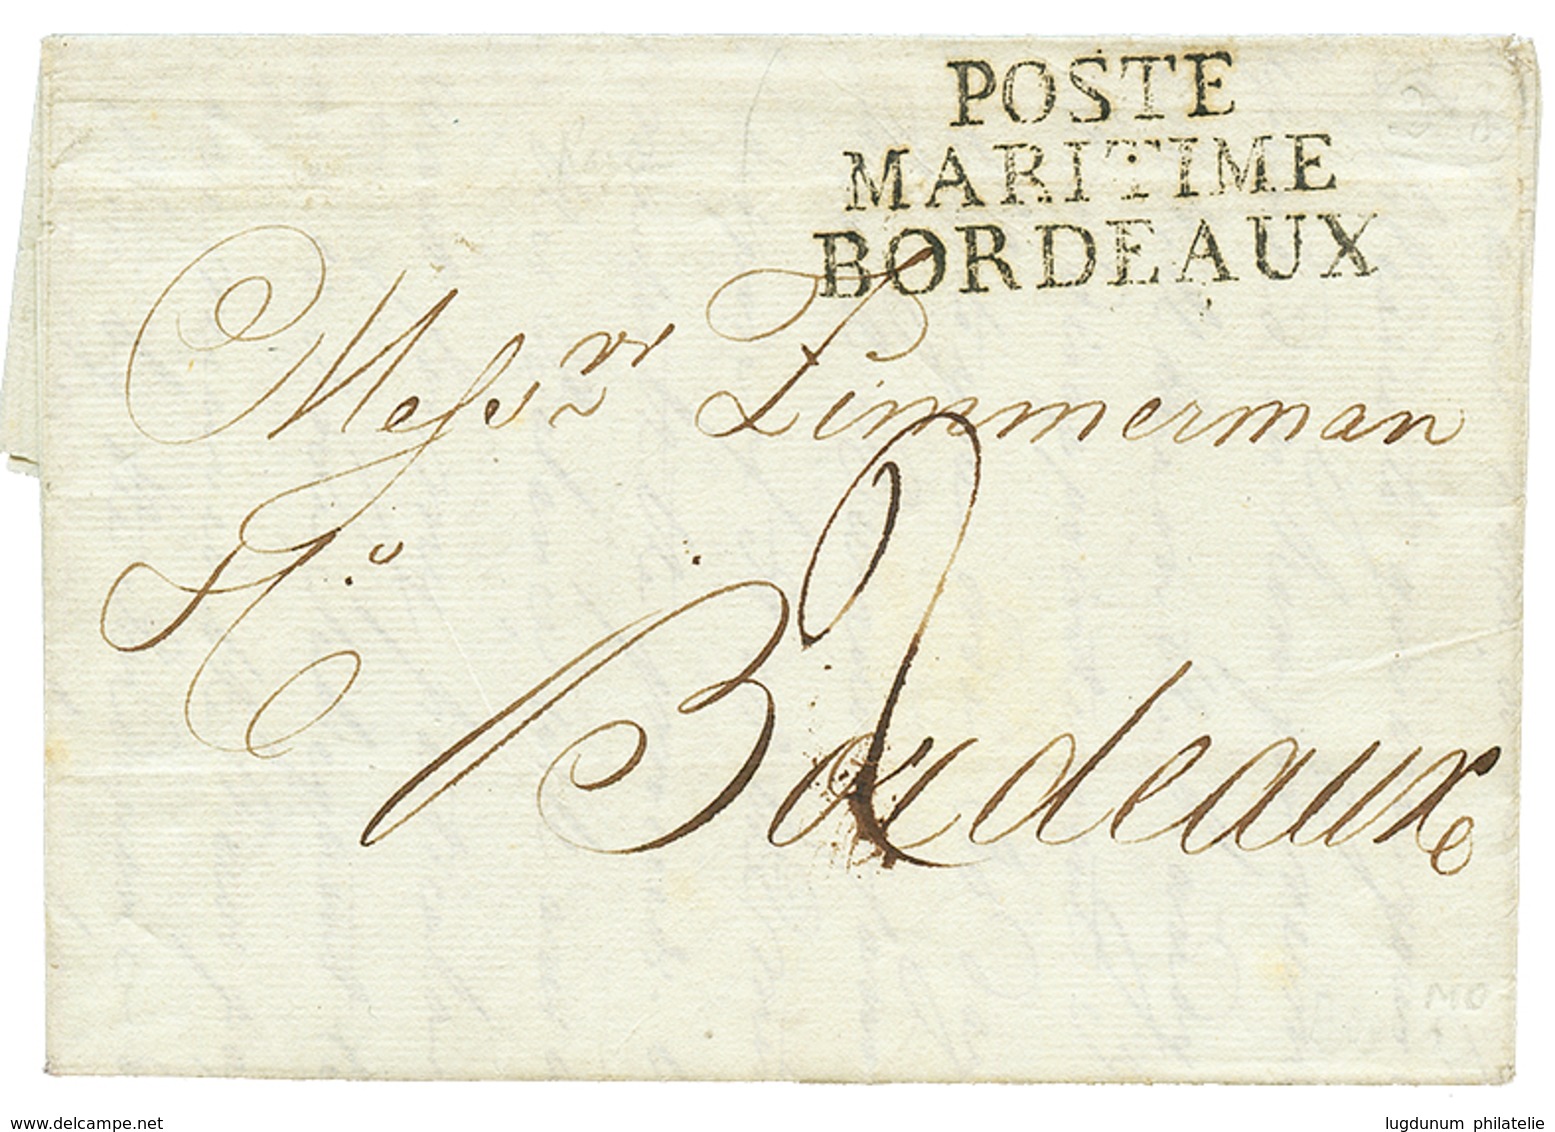 POSTE
MARITIME
BORDEAUX
Messrs Zimmerman
Bordeaux
2
MO
www.delcampe.net
lugdunum philatelie